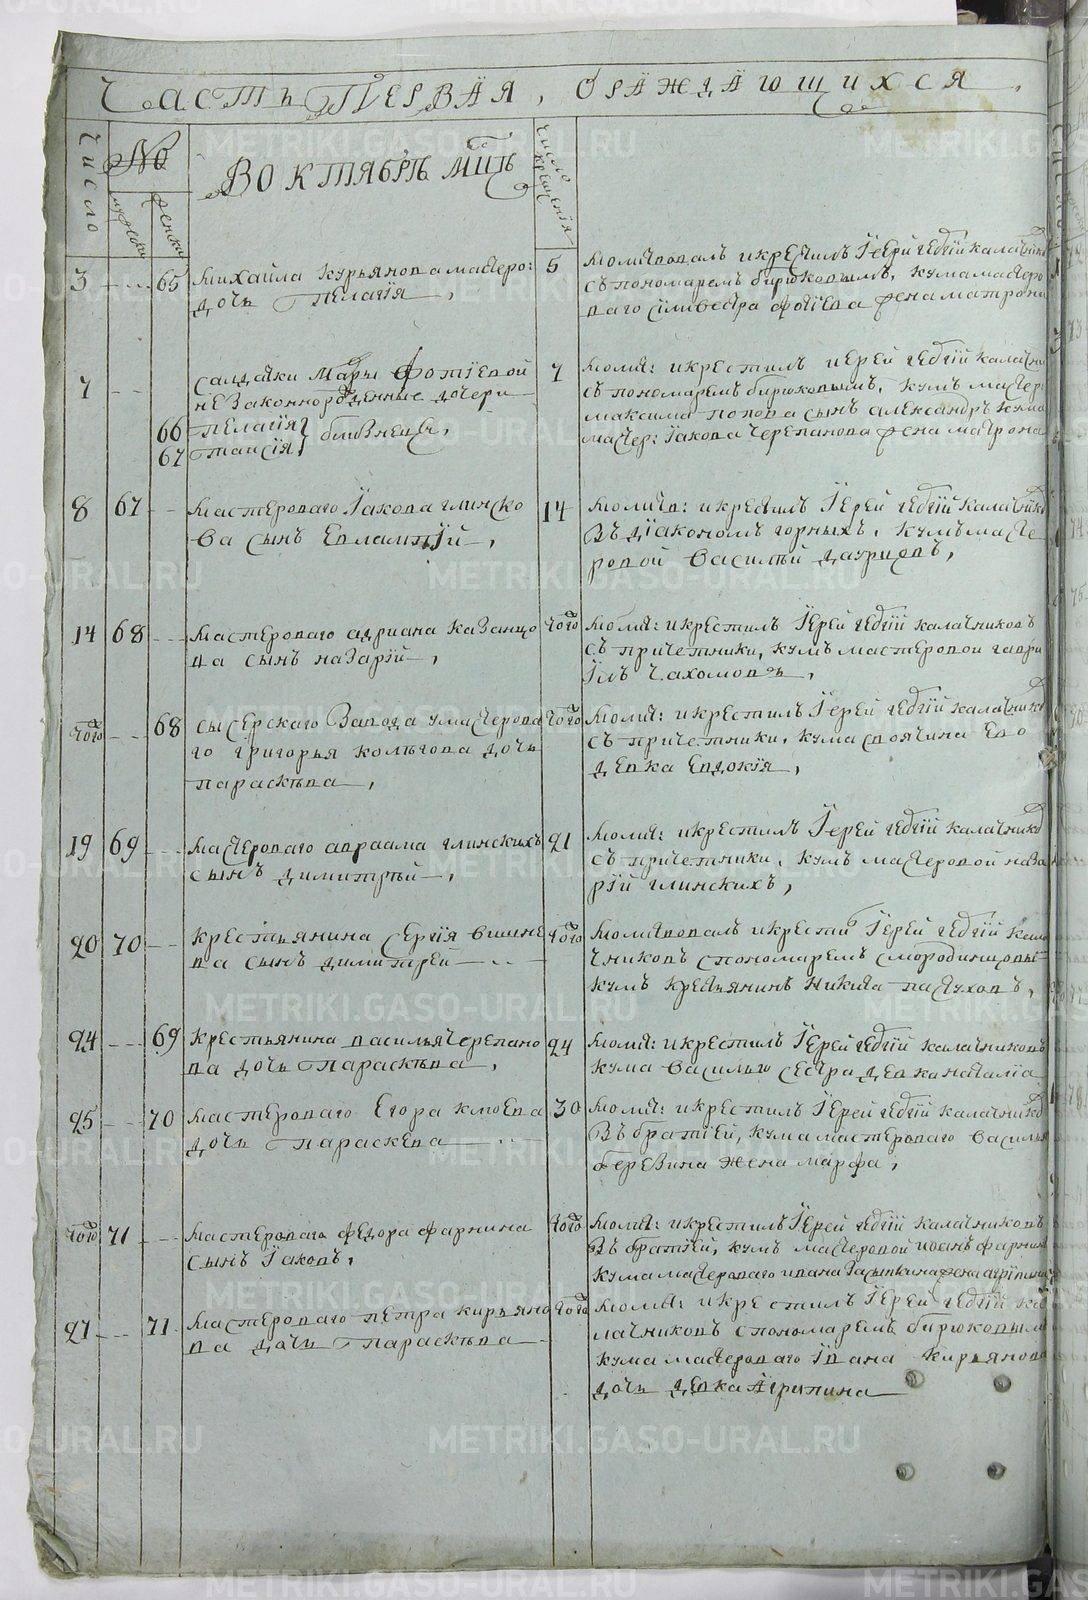 Часть Первая, о раждающихся,
Число
№
мужеска
женска
В октябрѣ мцѣ
число крещения
3 65 Михайла Курьянова мастеро:
дочь Пелагїя,
5 Молитвовалъ и крестилъ Іерей Геѡргїй Калачник
съ пономаремъ Бирюковымъ, кума мастеро
ваго Сіливестра Фотїева жена Матрона
7 салдатки Марьи Фотїевой
незаконнорожденные дочери
66 Пелагїя
67 Таисїя близнецы,
7 Молит: и крестилъ иерей Геѡргїй Калачни
съ пономаремъ Бирюковымъ, кумъ мастер:
Максима Попова сынъ Александръ кума
мастер: Іакова Черепанова жена Матрона
8 67 Мастероваго Іакова Глинско
ва сынъ Евлампїй,
14 Молитв: и крестилъ Іерей Геѡргїй Калачник
въ дїакономъ Горныхъ, кумъ масте
ровой Василїй
14 68 Мастероваго Адриана Казанцо
ва сынъ Назарїй,
тогѡ Молит: и крестилъ Іерей Геѡргїй Калачниковъ
съ причетники, кумъ мастеровой Гаври
їлъ Чахомовъ,
тогѡ 68 Сысерскаго Завода у мастерова
го Григорья Колыгова дочь
Параскѣва,
тогѡ Молит: и крестилъ Іерей Геѡргїй Калачник
съ причетники, кума своячина его
девка Евдокїя,
19 69 Мастероваго Авраама Глинскихъ
сынъ Димитрїй,
21 Молит: и крестилъ Іерей Геѡргїй Калачник
съ причетники, кумъ мастеровой Наза
рїй Глинскихъ,
20 70 Крестьянина Сергїя Вшивце
ва сынъ Димитрей
тогѡ Молитвовалъ и крестил Іерей Геѡргїй Кала
чниковъ с пономаремъ Смородинцовы
кумъ крестьянинъ Никита Пастуховъ,
24 69 Крестьянина Василья Черепано
ва дочь Параскѣва,
24 Молит: и крестилъ Іерей Геѡргїй Калачниковъ
кума Василью сестра девка Наталїа
25 70 Мастероваго Егора Клюева
дочь Параскева
30 Молит: и крестилъ Іерей Геѡргїй Калачник
въ братїей, кума мастероваго Василья
Березина жена Марфа,
тогѡ 71 Мастероваго Федора Фарнина
сынъ Іаковъ,
тогѡ Молит: и крестилъ Іерей Геѡргїй Калачниковъ
въ братїей, кумъ мастеровой Иоанъ Фарнин
кума мастероваго Ивана Засыпкина жена Агрїпина
27 71 Мастероваго Петра Кирьяно
ва дочь Параскѣва
тогѡ Молит: и крестилъ Іерей Геѡргїй Ка
лачниковъ с пономаремъ Бирюковым
кума мастероваго Ївана Кирьянова
дочь девка Агрипина
METRIKI.GASO-URAL.RU